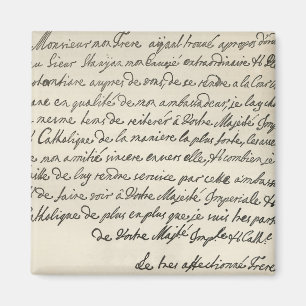 Monsieur mon Frere aÿant trouvé apropos d'en
au Sieur Stanÿan mon Envoÿé extraordinaire et Ple
potentiare aupres de vous, de se rendre a la Court
en qualité de mon ambassadeur, je laÿ ch
mesme tems de reiterer à Vostre Majesté Imp
Catholique de la maniere la plus forte, les asse
mon amitié sincere envers elle, et combien je
de luy rendre service par cette ambass
de faire voir à Vostre Majesté Imperiale et
atholique de plus en plus que je suis tres par
de Vostre Majté Imple et Cath
Le tres affectionné Frere